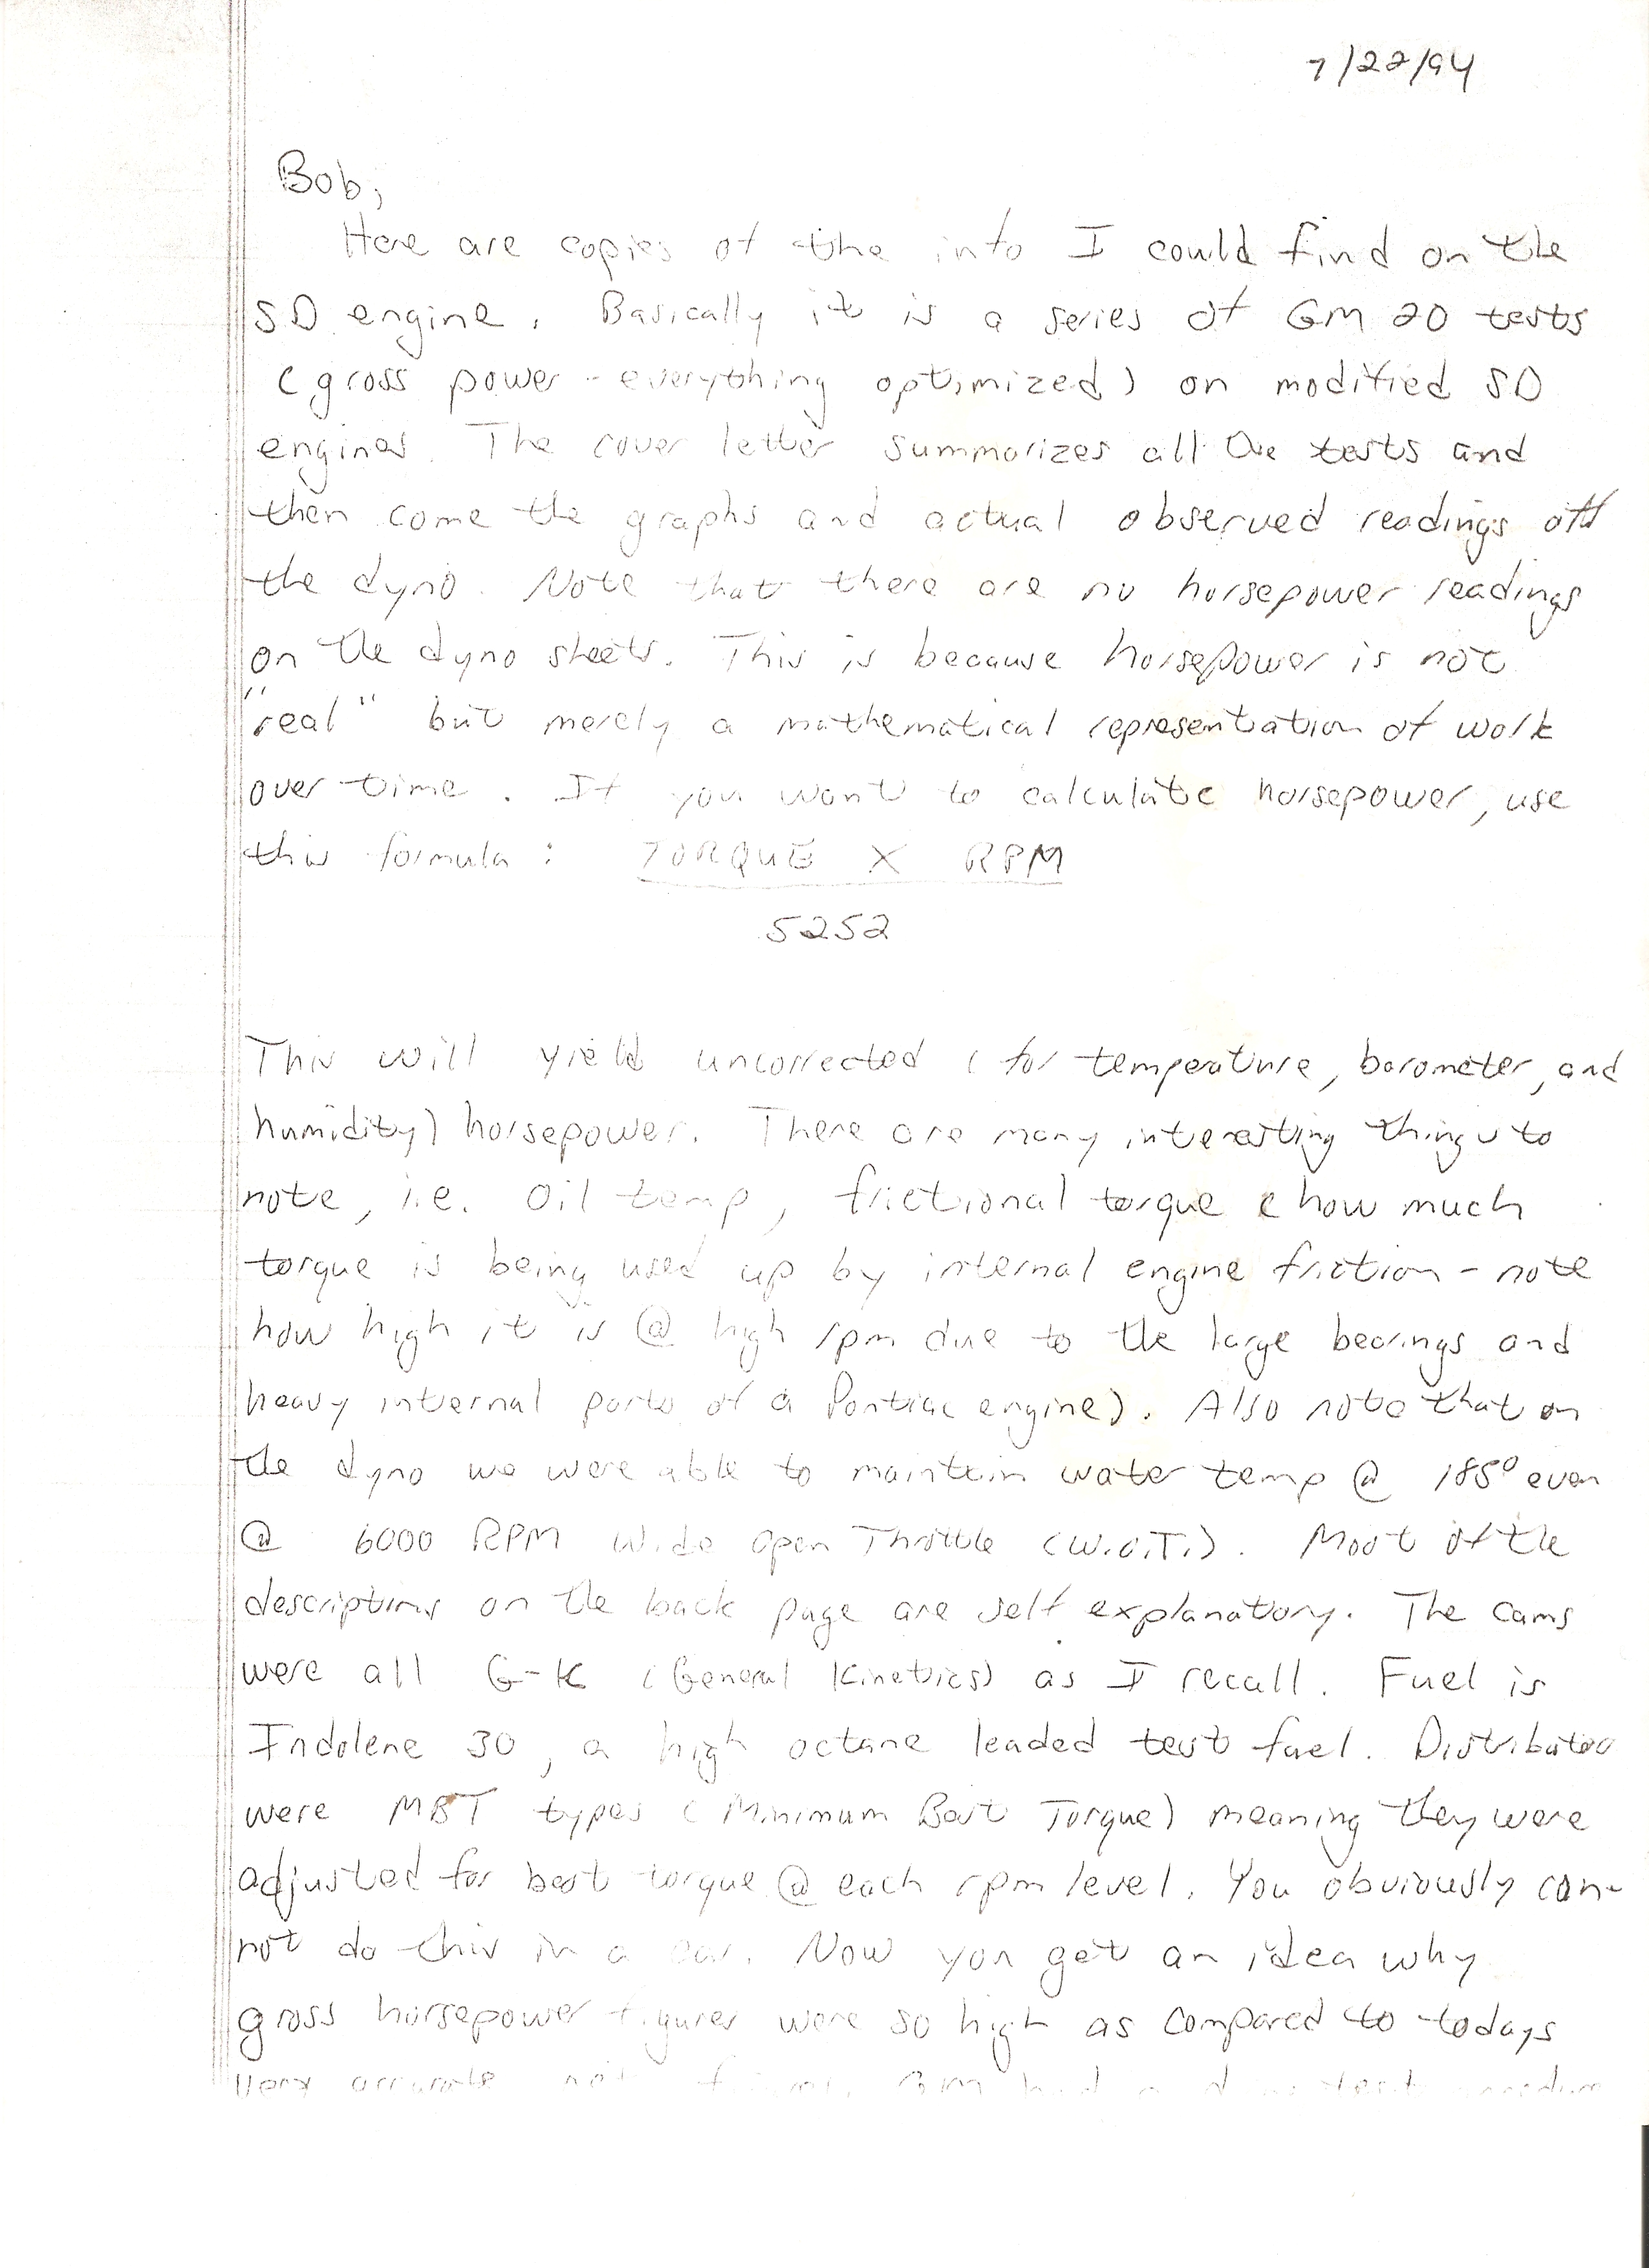 7/22/94
Bob,
Here are copies of the info I could find on the
SD engine. Basically it is a series of GM 20 tests
(gross power - everything optimized) on modified SD
engines. The cover letter summarizes all the tests and
then come the graphs and actual observed readings off
the dyno. Note that there are no horsepower readings
on the dyno sheets. This is because horsepower is not
"real" but merely a mathematical representation of work
over time. If you want to calculate horsepower, use
this formula: TORQUE X RPM
5252
This will yield uncorrected (for temperature, barometer, and
humidity) horsepower. There are many interesting things to
note, i.e. Oil temp, frictional torque (how much
torque is being used up by internal engine friction - note
how high it is @ high rpm due to the large bearings and
heavy internal parts of a Pontiac engine). Also note that on
the dyno we were able to maintain water temp @ 185° even
@ 6000 RPM Wide Open Throttle (W.O.T.). Most of the
descriptions on the back page are self explanatory. The cams
were all G-K (General Kinetics) as I recall. Fuel is
Indolene 30, a high octane leaded test fuel. Distributors
were MBT types (Minimum Best Torque) meaning they were
adjusted for best torque @ each rpm level. You obviously can-
not do this in a car. Now you get an idea why
gross horsepower figures were so high as compared to todays
very accurate net